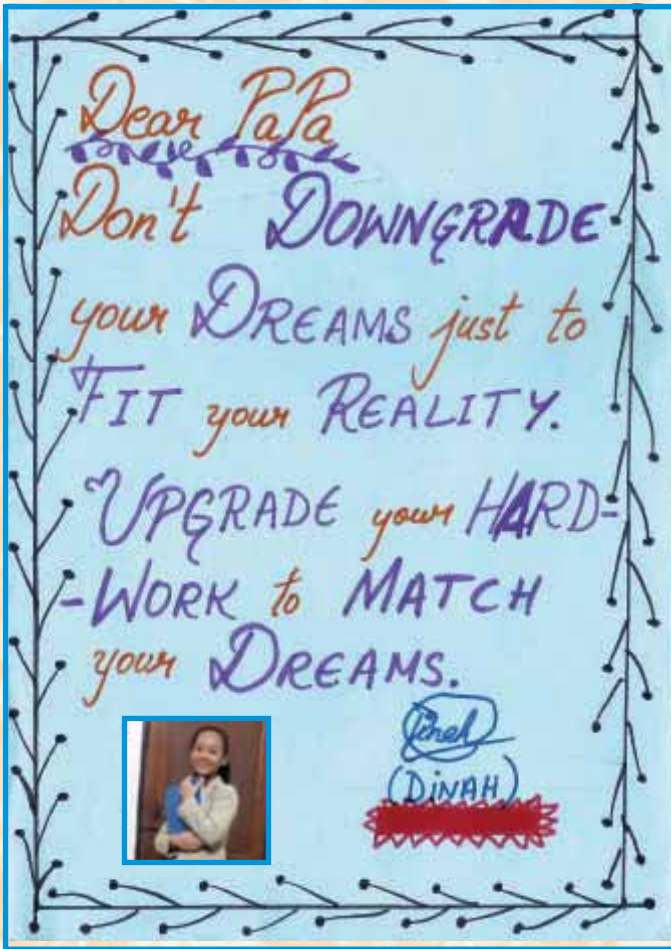 Dear PaPa
Don't DOWNGRADE
your DREAMS just to
FIT your REALITY.
UPGRADE your HARD-
-WORK to MATCH
your DREAMS.
Dinah
(DiNAH)